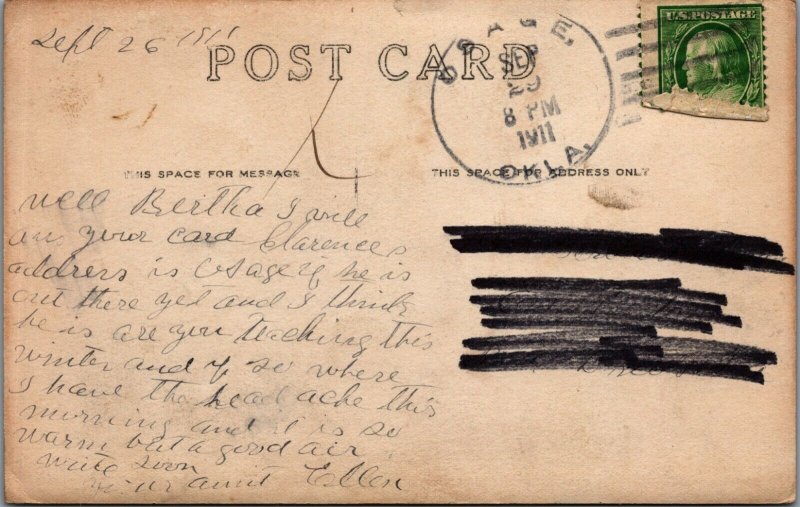 Sept 26 1911
POST CARD
OSAGE,
SEP
29
8 PM
1911
OKLA.
U.S. POSTAGE
THIS SPACE FOR MESSAGE
THIS SPACE FOR ADDRESS ONLY
Well Bertha I will
ans your card Clarences
address is Osage if he is
out there yet and I think
he is are you teaching this
winter and if so where
I have the head ache this
morning and it is so
warm but a good air
write soon
your aunt Ellen